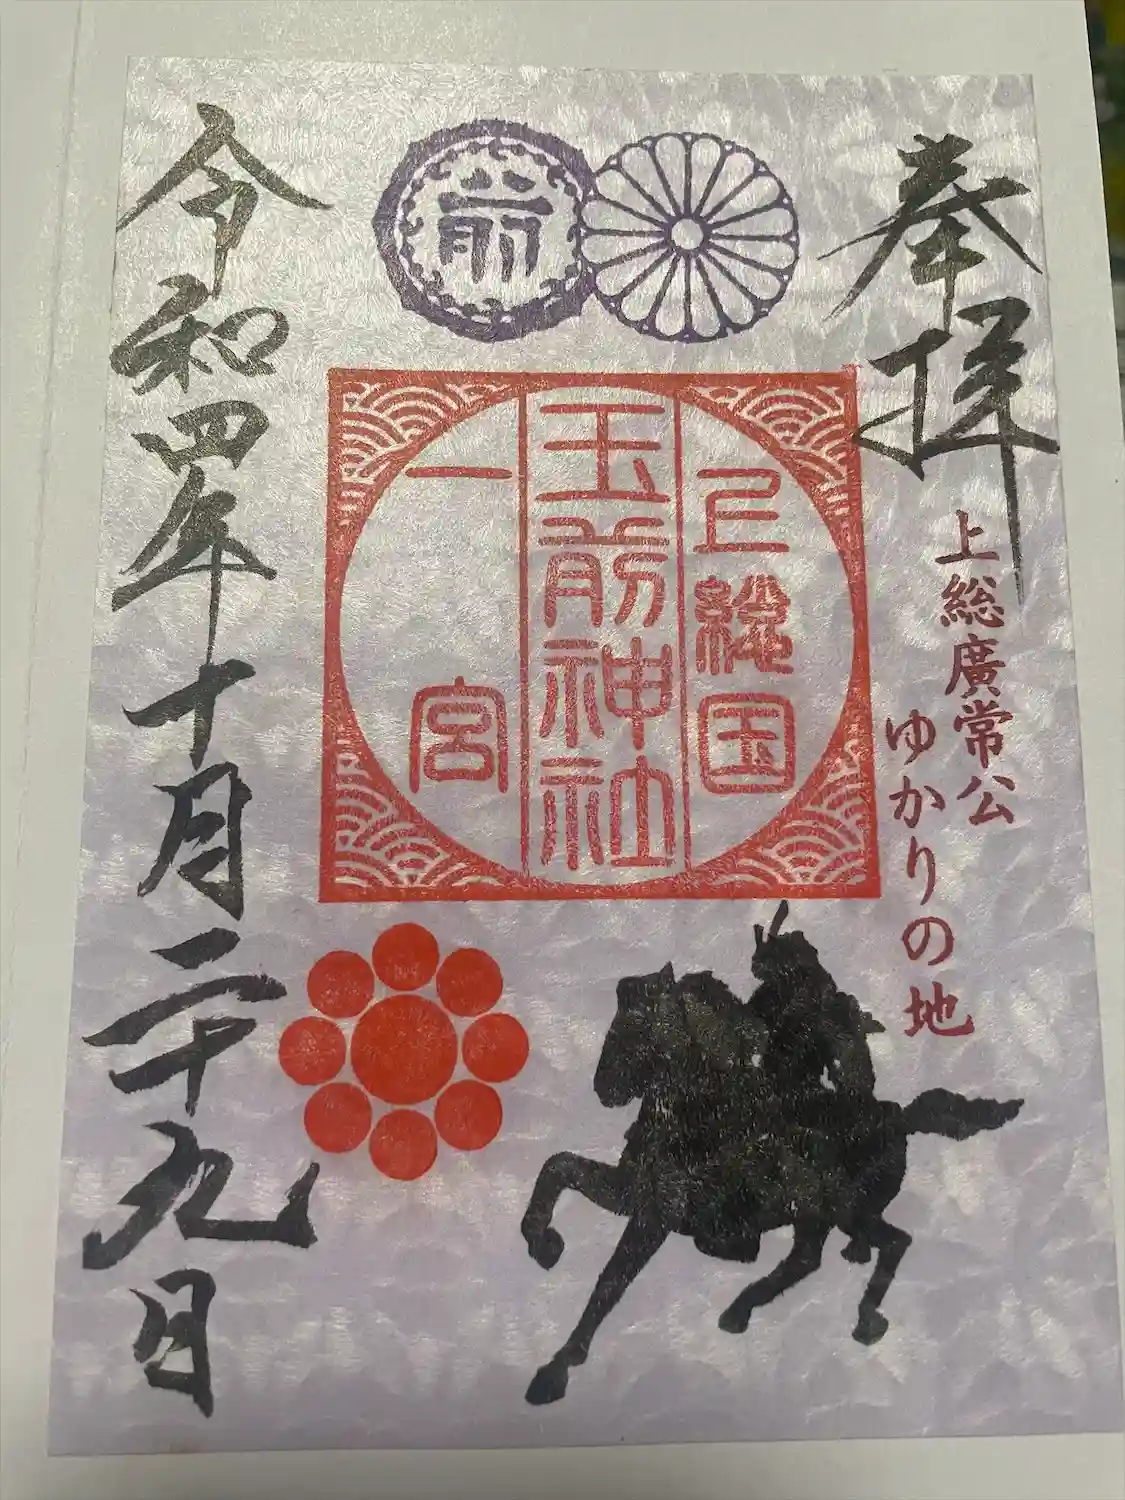 奉拝
上総廣常公
ゆかりの地
上総国
玉前神社
一宮
前
令和四年十月二十九日